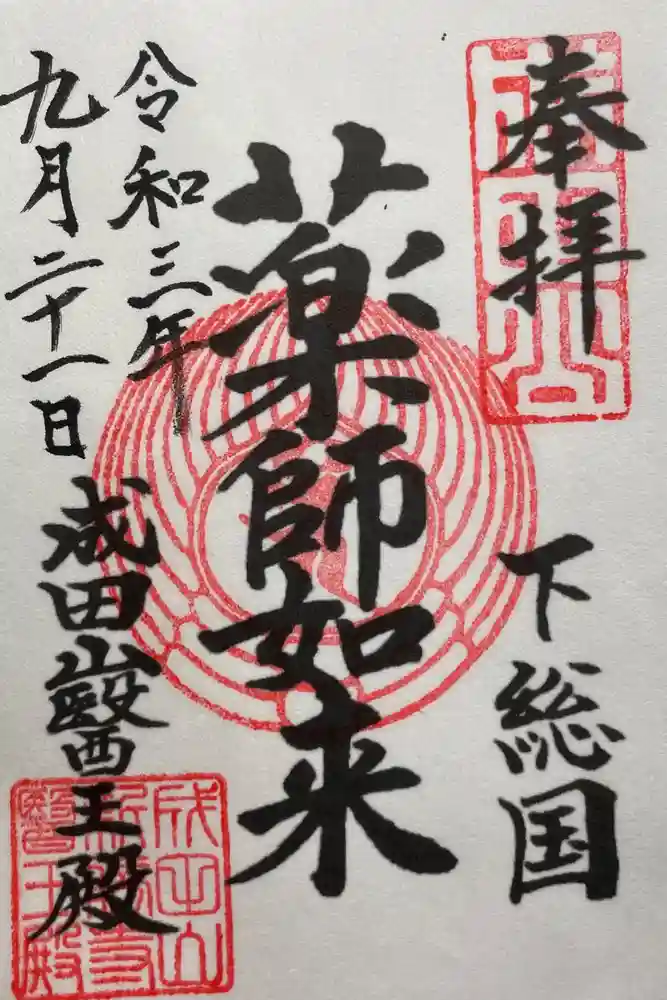 奉拝
下総国
薬師如来
令和三年
九月二十一日
成田山醫王殿
成田山
新勝寺
醫王殿